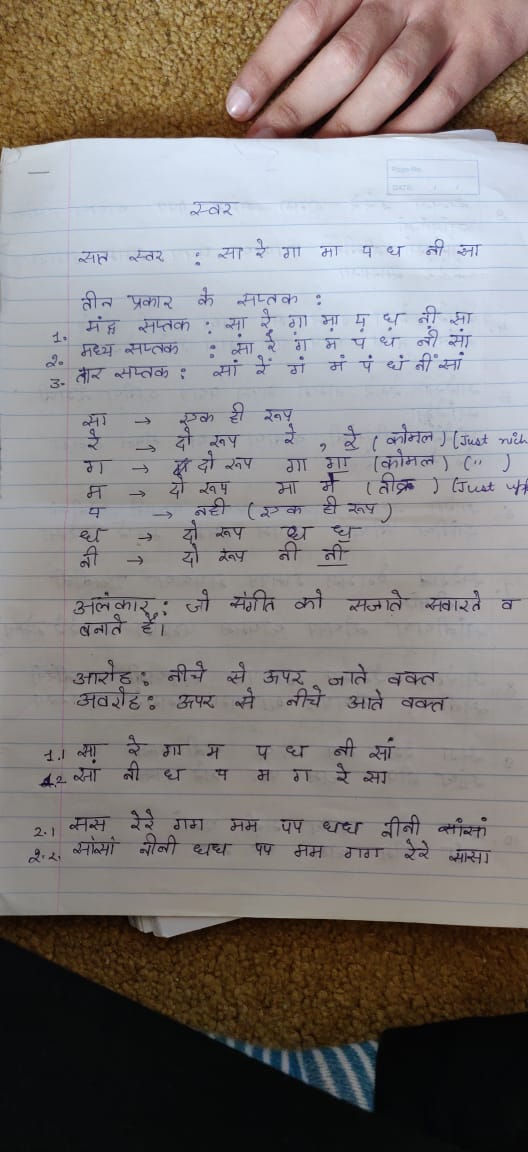 Page No.
DATE: / /
स्वर
सात स्वर : सा रे गा मा प ध नी सा
तीन प्रकार के सप्तक :
1. मंद्र सप्तक : सा़ रे़ गा़ मा़ प़ ध़ नी़ सा
2. मध्य सप्तक : सा रे ग म प ध नी सां
3. तार सप्तक : सां रें गं मं पं धं नीं सां
सा → एक ही रूप
रे → दो रूप रे , रे॒ (कोमल) (Just
ग → दो रूप गा गा॒ (कोमल) (")
म → दो रूप मा म॑ (तीव्र) (Just
प → नही (एक ही रूप)
ध → दो रूप ध ध॒
नी → दो रूप नी नी॒
अलंकार : जो संगीत को सजाते सवारते व
बनाते हैं।
आरोह : नीचे से ऊपर जाते वक्त
अवरोह : ऊपर से नीचे आते वक्त
1.1 सा रे गा म प ध नी सां
1.2 सां नी ध प म ग रे सा
2.1 सस रेरे गग मम पप धध नीनी सांसां
2.2. सांसां नीनी धध पप मम गग रेरे सासा